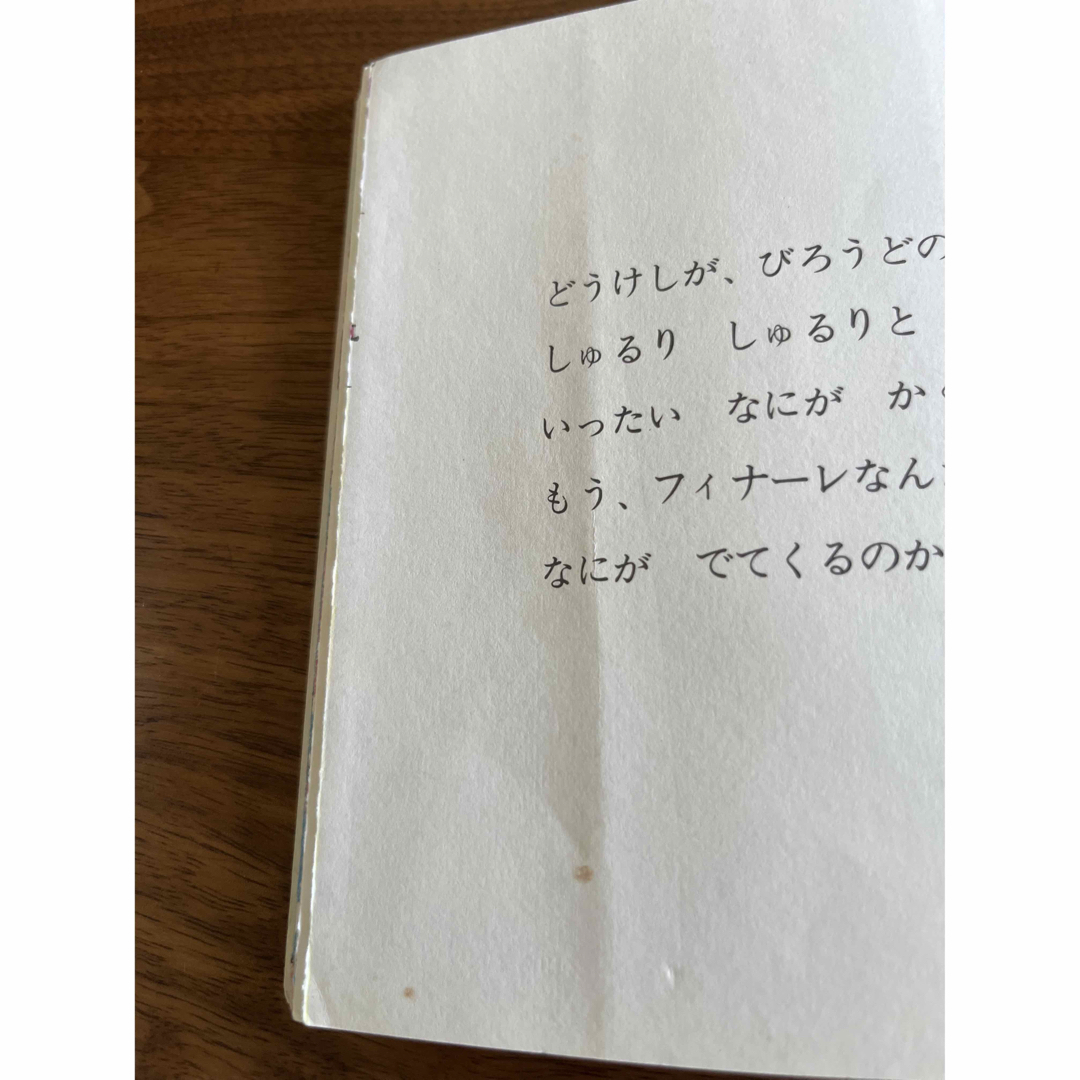 どうけしが、びろうどの
しゅるり　しゅるりと
いったい　なにが　かく
もう、フィナーレなん
なにが　でてくるのか